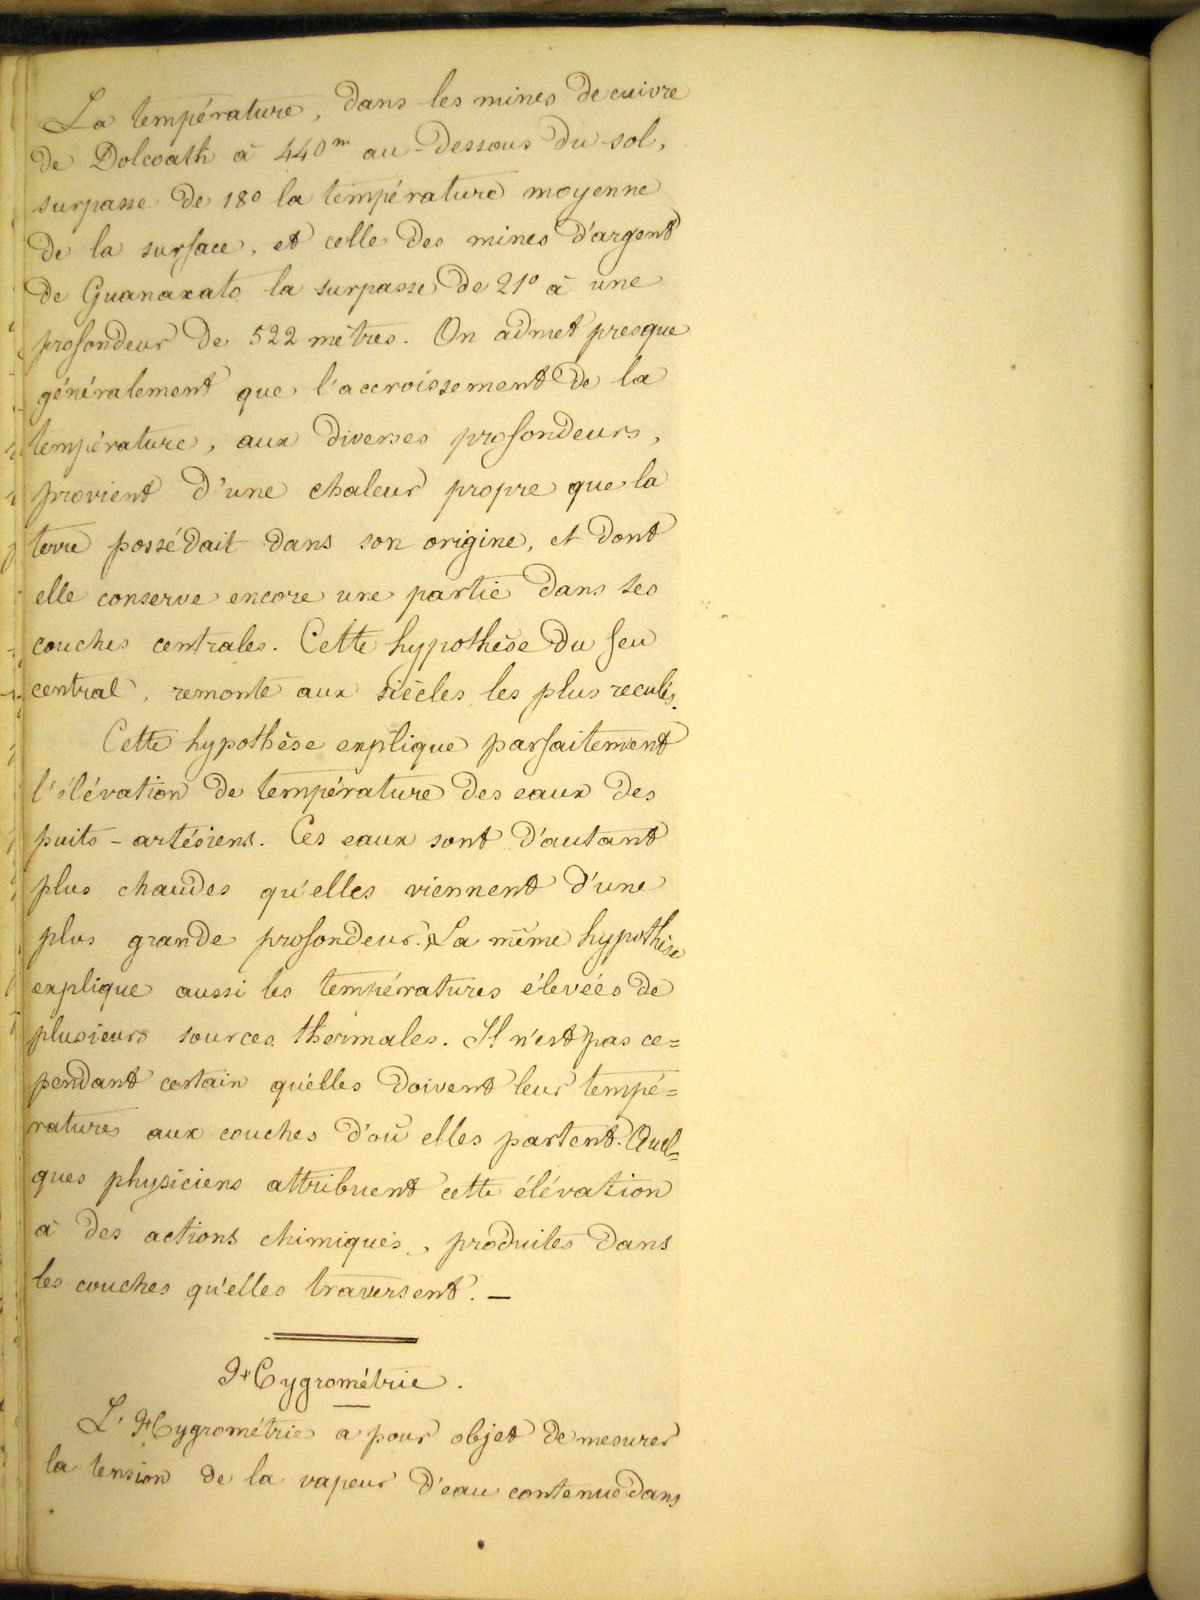 La température, dans les mines de cuivre
de Dolcoath à 440m au-dessous du sol,
surpasse de 18° la température moyenne
de la surface, et celle des mines d'argent
de Guanaxato la surpasse de 21° à une
profondeur de 522 mètres. On admet presque
généralement que l'accroissement de la
température, aux diverses profondeurs,
provient d'une chaleur propre que la
terre possédait dans son origine, et dont
elle conserve encore une partie dans ses
couches centrales. Cette hypothèse du feu
central, remonte aux siècles les plus reculés.
Cette hypothèse explique parfaitement
l'élévation de température des eaux des
puits-artésiens. Ces eaux sont d'autant
plus chaudes qu'elles viennent d'une
plus grande profondeur. La même hypothèse
explique aussi les températures élevées de
plusieurs sources thermales. Il n'est pas ce=
pendant certain qu'elles doivent leur tempé=
ratures aux couches d'où elles partent. Quel=
ques physiciens attribuent cette élévation
à des actions chimiques, produites dans
les couches qu'elles traversent. —
Hygrométrie.
L'Hygrométrie a pour objet de mesurer
la tension de la vapeur d'eau contenue dans